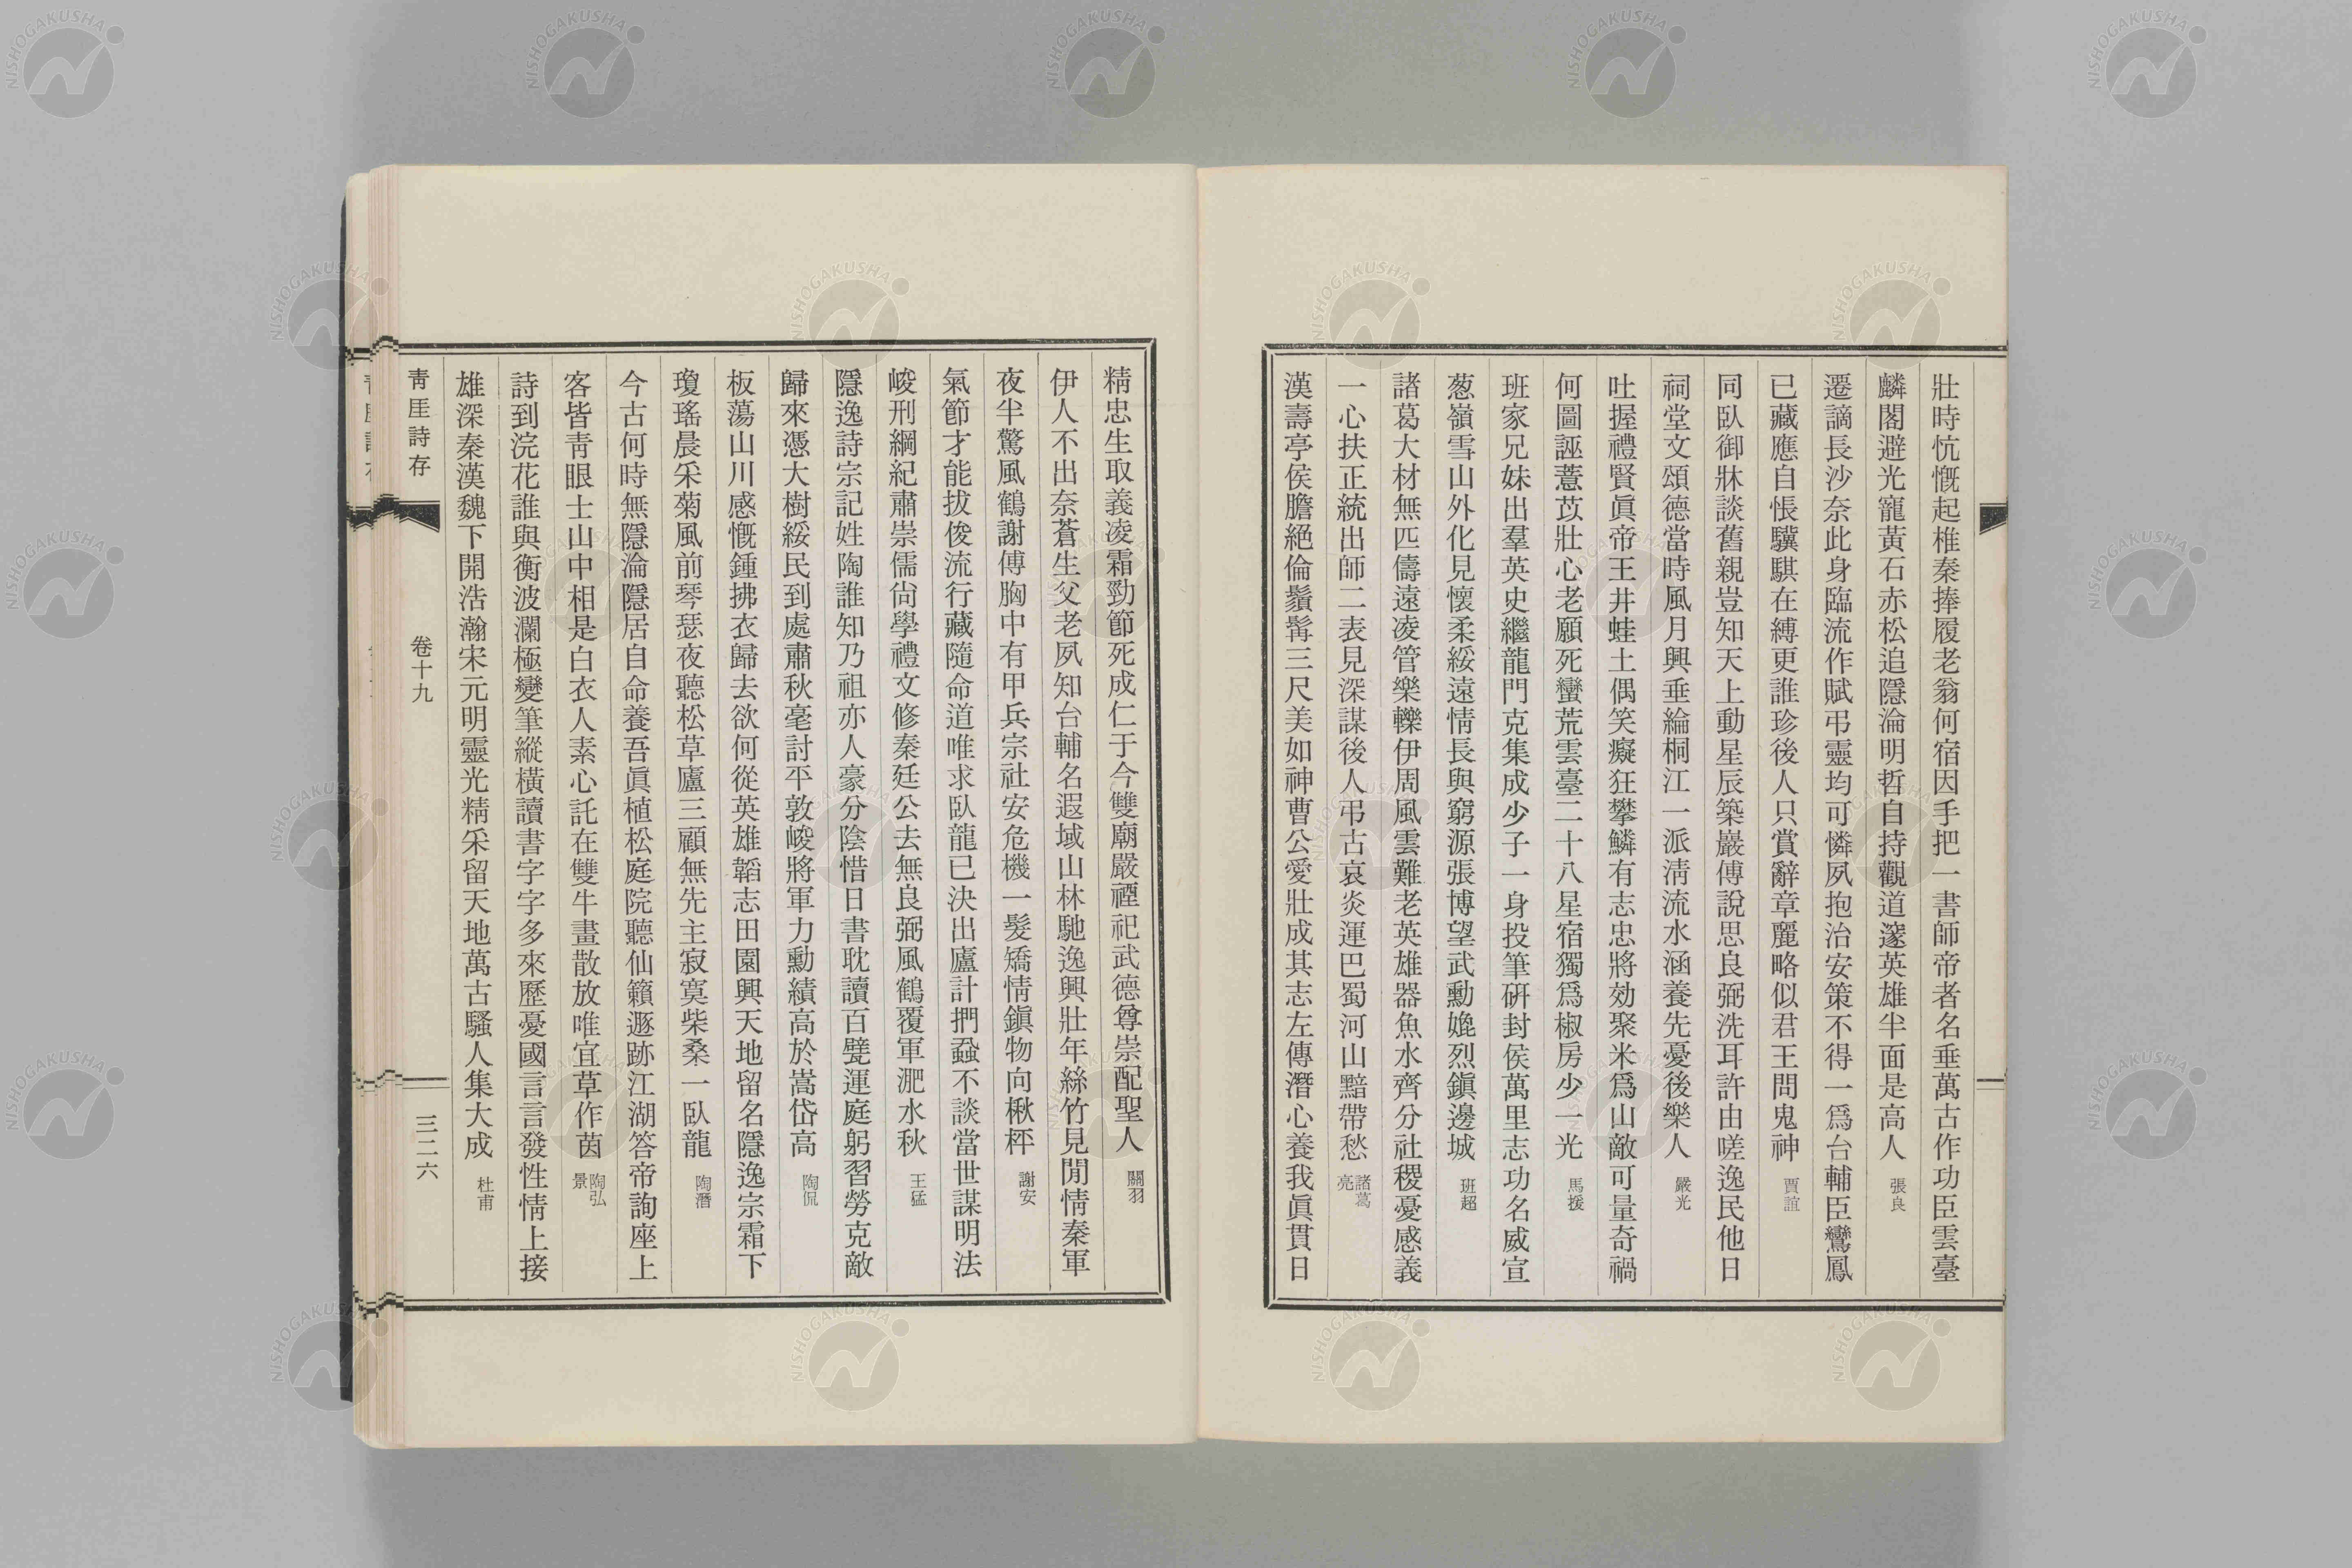 壯時忼慨起椎秦捧履老翁何宿因手把一書師帝者名垂萬古作功臣雲臺
麟閣避光寵黃石赤松追隱淪明哲自持觀道邃英雄半面是高人 張良
遷謫長沙奈此身臨流作賦弔靈均可憐夙抱治安策不得一爲台輔臣鸞鳳
已藏應自悵驥騏在縛更誰珍後人只賞辭章麗略似君王問鬼神 賈誼
同臥御牀談舊親豈知天上動星辰築巖傅說思良弼洗耳許由嗟逸民他日
祠堂文頌德當時風月興垂綸桐江一派淸流水涵養先憂後樂人 嚴光
吐握禮賢眞帝王井蛙土偶笑癡狂攀鱗有志忠將効聚米爲山敵可量奇禍
何圖誣薏苡壯心老願死蠻荒雲臺二十八星宿獨爲椒房少一光 馬援
班家兄妹出羣英史繼龍門克集成少子一身投筆硏封侯萬里志功名威宣
葱嶺雪山外化見懷柔綏遠情長與窮源張博望武勳嬎烈鎭邊城 班超
諸葛大材無匹儔遠凌管樂轢伊周風雲難老英雄器魚水齊分社稷憂感義
一心扶正統出師二表見深謀後人弔古哀炎運巴蜀河山黯帶愁 諸葛亮
漢壽亭侯膽絕倫鬚髯三尺美如神曹公愛壯成其志左傳潛心養我眞貫日
精忠生取義凌霜勁節死成仁于今雙廟嚴禋祀武德尊崇配聖人 關羽
伊人不出奈蒼生父老夙知台輔名遐域山林馳逸興壯年絲竹見閒情秦軍
夜半驚風鶴謝傅胸中有甲兵宗社安危機一髮矯情鎭物向楸枰 謝安
氣節才能拔俊流行藏隨命道唯求臥龍已決出廬計捫蝨不談當世謀明法
峻刑綱紀肅崇儒尙學禮文修秦廷公去無良弼風鶴覆軍淝水秋 王猛
隱逸詩宗記姓陶誰知乃祖亦人豪分陰惜日書耽讀百甓運庭躬習勞克敵
歸來憑大樹綏民到處肅秋毫討平敦峻將軍力勳績高於嵩岱高 陶侃
板蕩山川感慨鍾拂衣歸去欲何從英雄韜志田園興天地留名隱逸宗霜下
瓊瑤晨采菊風前琴瑟夜聽松草廬三顧無先主寂寞柴桑一臥龍 陶潛
今古何時無隱淪隱居自命養吾眞植松庭院聽仙籟遯跡江湖答帝詢座上
客皆靑眼士山中相是白衣人素心託在雙牛畫散放唯宜草作茵 陶弘景
詩到浣花誰與衡波瀾極變筆縱橫讀書字字多來歷憂國言言發性情上接
雄深秦漢魏下開浩瀚宋元明靈光精采留天地萬古騷人集大成 杜甫
靑厓詩存
卷十九
三二六